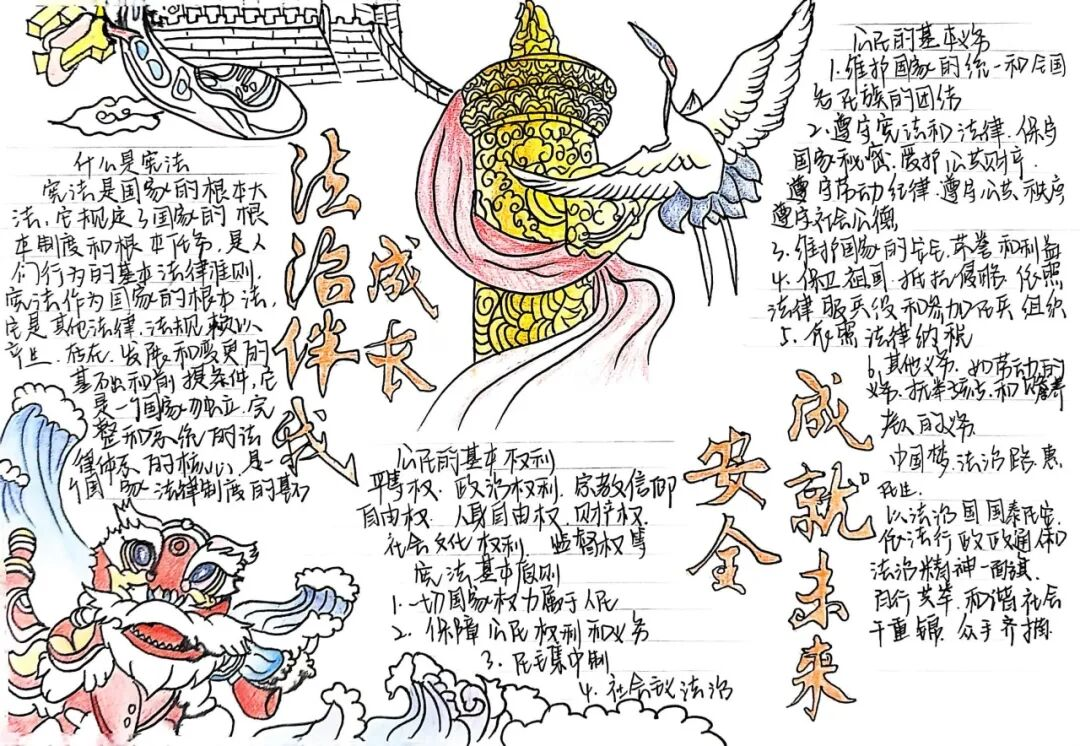 什么是宪法
宪法是国家的根本大
法，它规定了国家的根
本制度和根本任务，是人
们行为的基本法律准则，
宪法作为国家的根本法，
它是其他法律、法规赖以
产生、存在、发展和变更的
基础和前提条件，它
是一个国家独立、完
整和系统的法
律体系的核心，是一
个国家法律制度的基石
法治伴我
成长
公民的基本权利
平等权、政治权利、宗教信仰
自由权、人身自由权、财产权、
社会文化权利、监督权等
宪法基本原则
1、一切国家权力属于人民
2、保障公民权利和义务
3、民主集中制
4、社会主义法治
安全
成就未来
公民的基本义务
1、维护国家的统一和全国
各民族的团结
2、遵守宪法和法律、保守
国家秘密、爱护公共财产、
遵守劳动纪律、遵守公共秩序
遵守社会公德
3、维护国家的安全、荣誉和利益
4、保卫祖国、抵抗侵略、依照
法律服兵役和参加民兵组织
5、依照法律纳税
6、其他义务、如劳动的
义务、抚养 和赡养
老人的义务
中国梦、法治路、惠
民生、
以法治国国泰民安、
依法行政政通人和
法治精神一面旗、
百行共举、和谐社会
千重锦、众手齐描